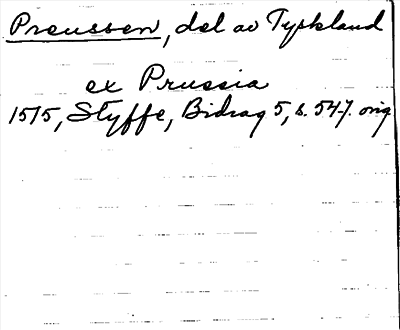 Preussen, del av Tyskland
ex Prussia
1515, Styffe, Bidrag 5, s. 547. orig